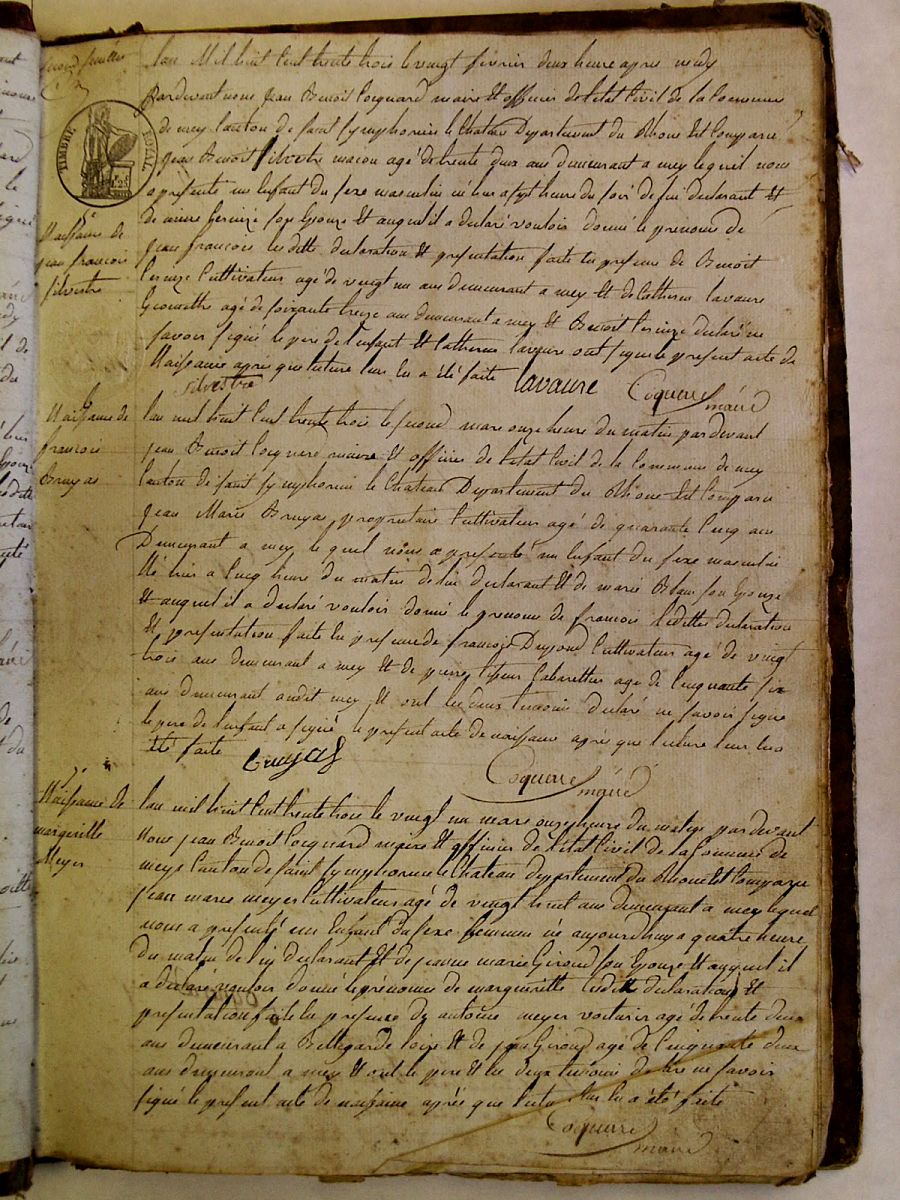 second feuillet
TIMBRE ROYAL
5e
Naissance de
jean françois
silvestre
lan Mil huit Cent trente trois le vingt février deux heure apres midy
pardevant nous jean Benoit Coquard maire Et officier de letat Civil de la Commune
de meys Canton de saint symphorien le Chateau Departement du Rhone Est Comparu
jean Benoit silvestre macon agé de trente deux ans demeurant a mey lequel nous
a présenté un Enfant du sexe masculin né hier a sept heure du soir de lui declarant Et
de son Epouze Et auquel il a declaré vouloir donné le prenoms de
jean françois lesdittes declaration Et presentation faite En presence de Benoit
Cultivateur agé de vingt un ans demeurant a mey Et de Catherin lavaure
Geomettre agé de soixante treize ans demeurant a mey Et Benoit declaré ne
savoir signé le pere de lenfant Et Catherin lavaure ont signé le present acte de
Naissance après que lecture leur En a été faite
silvestre lavaure Coquard maire
6
Naissance de
françois
Bruyas
lan mil huit Cent trente trois le second mars onze heure du matin pardevant
jean Benoit Coquard maire Et officier de letat Civil de la Commune de mey
Canton de saint symphorien le Chateau Departement du Rhone Est Comparu
jean Marie Bruyas proprietaire Cultivateur agé de quarante Cinq ans
Demeurant a mey le quel nous a presenté un Enfant du sexe masculin
Né hier a Cinq heure du matin de lui declarant Et de marie Blanc son Epouze
Et auquel il a declaré vouloir donné le prenoms de francois lesdittes declaration
Et presentation faite En presence de francois Cultivateur agé de vingt
trois ans demeurant a mey Et de pierre Cabarettier agé de Cinquante six
ans demeurant audit mey Et ont les deux temoin declaré ne savoir signé
le pere de lenfant a signé le present acte de naissance après que lecture leur En a
Eté faite
Bruyas Coquard maire
7e
Naissance de
marguerite
Meyer
lan mil huit Cent trente trois le vingt un mars onze heure du matin par devant
Nous jean Benoit Coquard maire Et officier de létat Civil de La Commune de
meys Canton de saint symphorien le Chateau departement du Rhone Est Comparu
jean marie meyer Cultivateur agé de vingt huit ans demeurant a mey lequel
nous a presenté un Enfant du sexe femenin né aujourdhuy a quatre heure
du matin de luy declarant Et de jeanne marie Giroud son Epouze Et auquel il
a declaré vouloir donné le prénoms de marguerite lesdittes declaration Et
presentation faite En presence de antoine meyer voiturier agé de trente deux
ans demeurant a Bellegarde loire Et de Giroud agé de Cinquante deux
ans demeurant a mey Et ont le pere Et les deux temoins declaré ne savoir
signé le present acte de naissance après que lecture leur En a été faite
Coquard maire